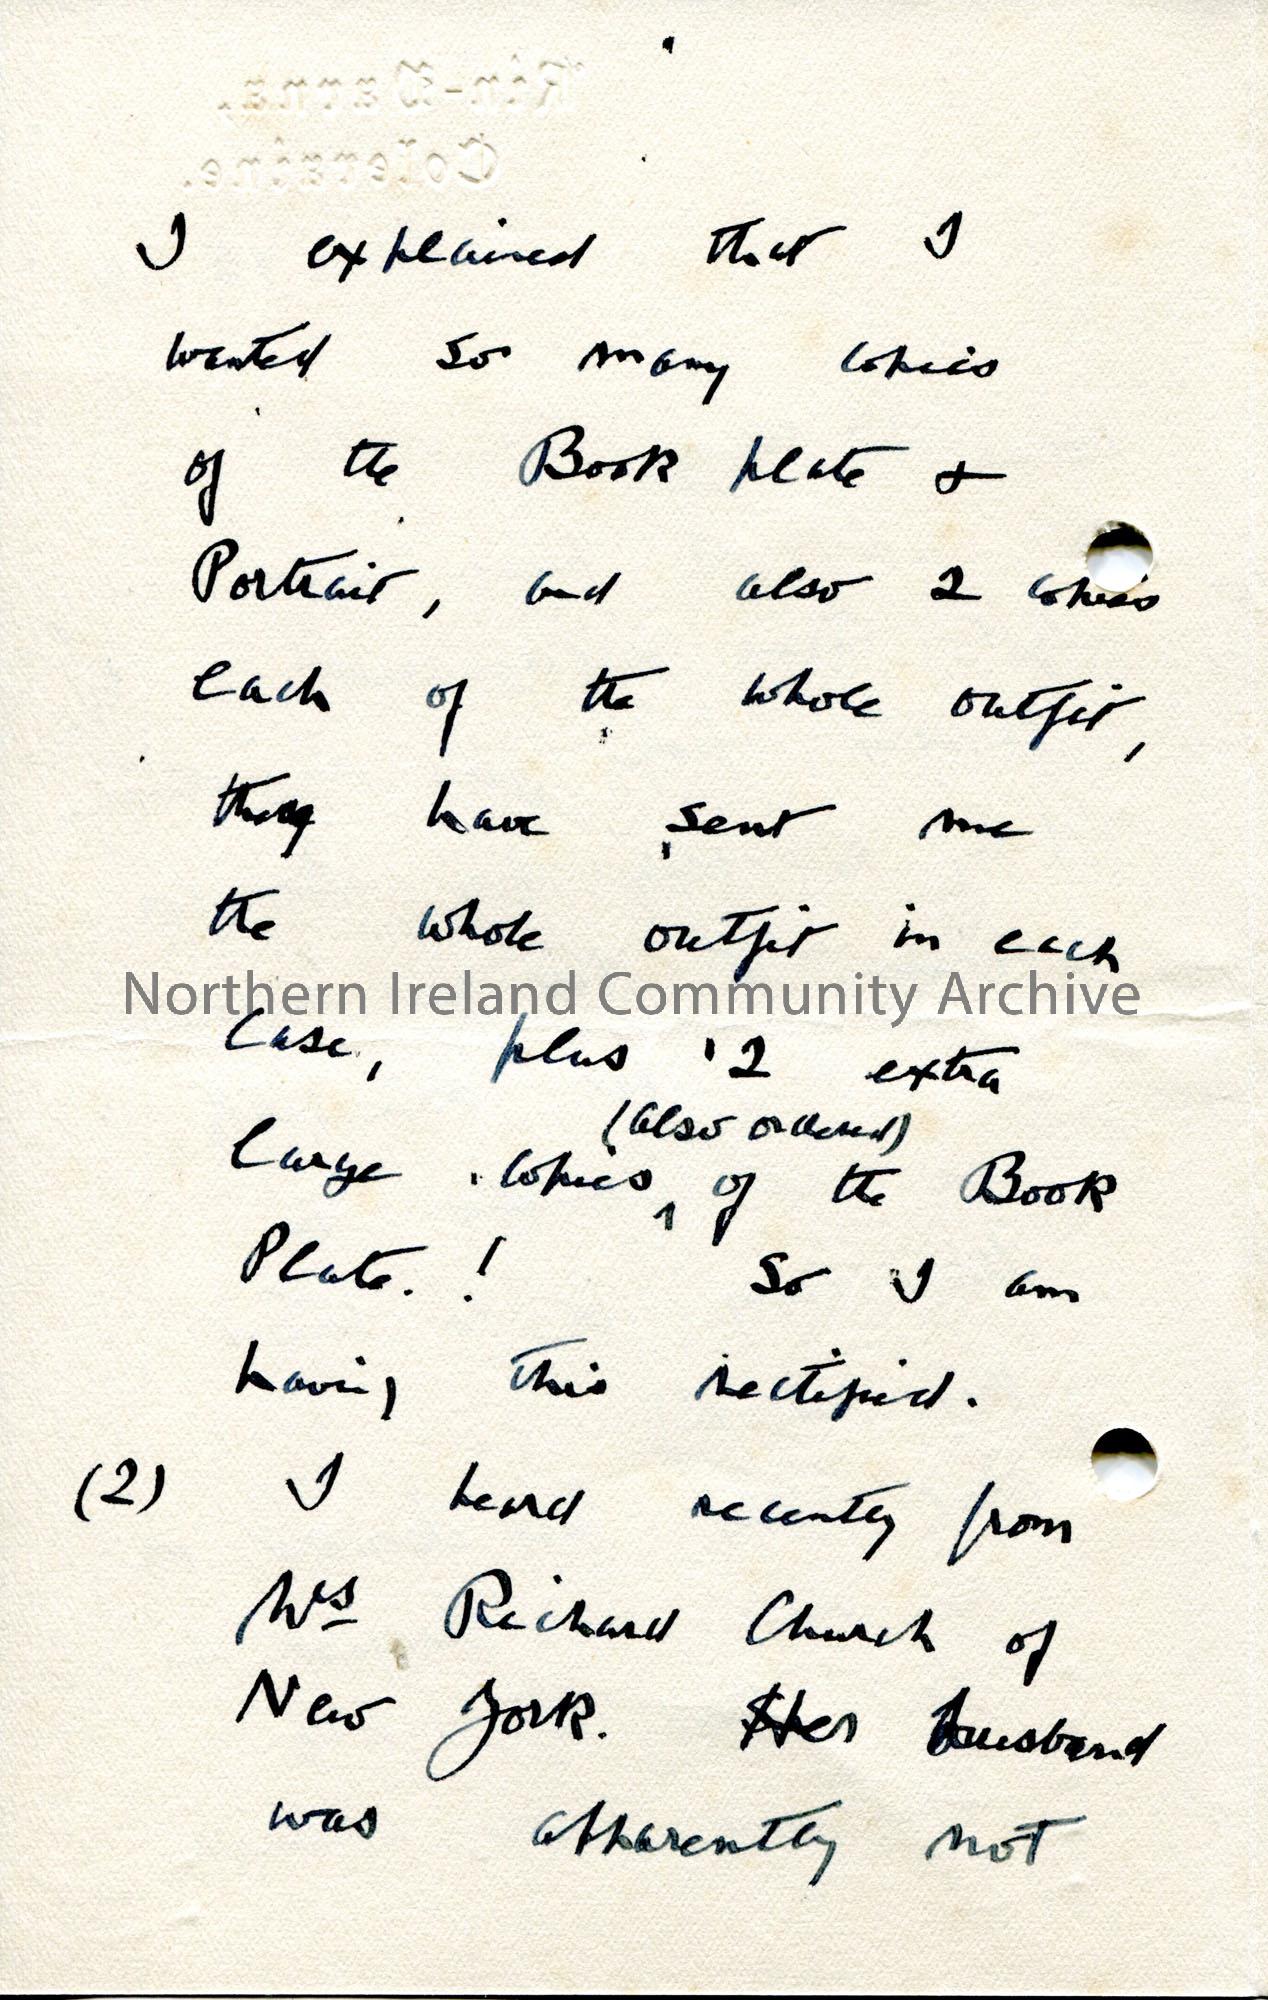 I explained that I
wanted so many copies
of the Book plate &
Portrait, and also 2 copies
each of the whole outfit,
they have sent me
the whole outfit in each
Northern Ireland Community Archive
case, plus 2 extra
large copies (also ordered) of the Book
Plate. ! So I am
having this rectified.
(2) I heard recently from
Mrs Richard Church of
New York. Her husband
was apparently not